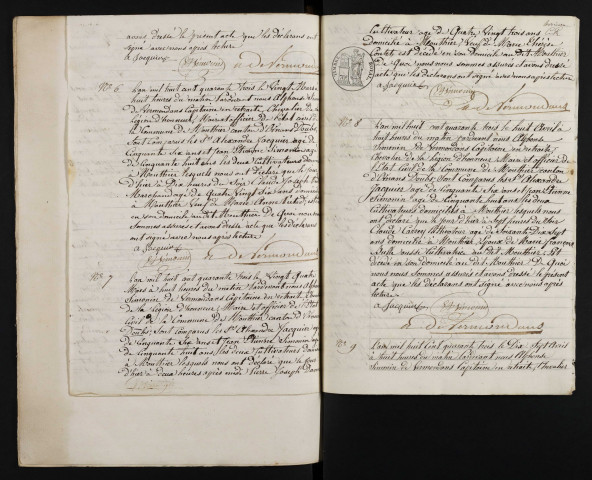 avons dressé le présent acte que les déclarans ont
signé avec nous après lecture
a Jacquier Simonin a de Vermondans
No. 6 L'an mil huit cent quarante trois le Vingt Mars
huit heures du matin pardevant nous Alphonse
de Vermondans Capitaine en retraite Chevalier de la
légion d'honneur, Maire et officier de l'état civil de
la Commune de Mouthier canton d'Ornans Doubs
Sont comparus les Srs Alexandre Jacquier agé de
Cinquante Six ans et Jean Etienne Simonin agé
de Cinquante huit ans les deux Cultivateurs
a Mouthier lesquels nous ont déclaré que le jour
d'hier à Dix heures du Soir Claude Joseph
Marchand agé de Quatre Vingt Six ans domicilié
à Mouthier Veuf de Marie Anne est décédé
en son domicile au dit Mouthier de Quoi nous nous
sommes assurés et avons dressé acte que les déclarans
ont signé avec nous après lecture
a Jacquier
Simonin a de Vermondans
No. 7 L'an mil huit cent quarante trois le Vingt Quatre
Mars à huit heures du matin pardevant nous Alphonse
Simonin de Vermondans Capitaine en retraite
de la légion d'honneur, Maire et officier de l'état
civil de la Commune de Mouthier canton d'Ornans
Doubs, Sont comparus les Srs Alexandre Jacquier agé
de Cinquante Six ans et Jean Etienne Simonin agé
de Cinquante huit ans, les deux Cultivateurs
à Mouthier lesquels nous ont déclaré que le jour
d'hier à deux heures après midi Pierre Joseph
Cultivateur agé de Quatre Vingt trois ans
Domicilié a Mouthier Veuf de Marie
est décédé en son domicile au dit Mouthier
de Quoi nous nous sommes assurés et avons dressé
acte que les déclarans ont signé avec nous après lecture
a Jacquier Simonin
a de Vermondans
No. 8 L'an mil huit cent quarante trois le huit Avril à
huit heures du matin pardevant nous Alphonse
Simonin de Vermondans Capitaine en retraite
Chevalier de la légion d'honneur Maire et officier de
l'état Civil de la Commune de Mouthier canton
d'Ornans Doubs Sont comparus les Srs Alexandre
Jacquier agé de Cinquante Six ans et Jean Etienne
Simonin agé de Cinquante huit ans les deux
Cultivateurs domiciliés a Mouthier lesquels nous
ont déclaré que le jour d'hier à Sept heures du Soir
Claude Cultivateur agé de Soixante Dix Sept
ans domicilié a Mouthier Epoux de Marie Françoise
Cultivatrice au dit Mouthier Est
décédé en son domicile au dit Mouthier de Quoi
nous nous sommes assurés et avons dressé le présent
acte que les déclarans ont signé avec nous après
lecture
a Jacquier Simonin
a de Vermondans
No. 9 L'an mil huit cent quarante trois le Dix Sept Avril
à huit heures du matin pardevant nous Alphonse
Simonin de Vermondans Capitaine en retraite, Chevalier